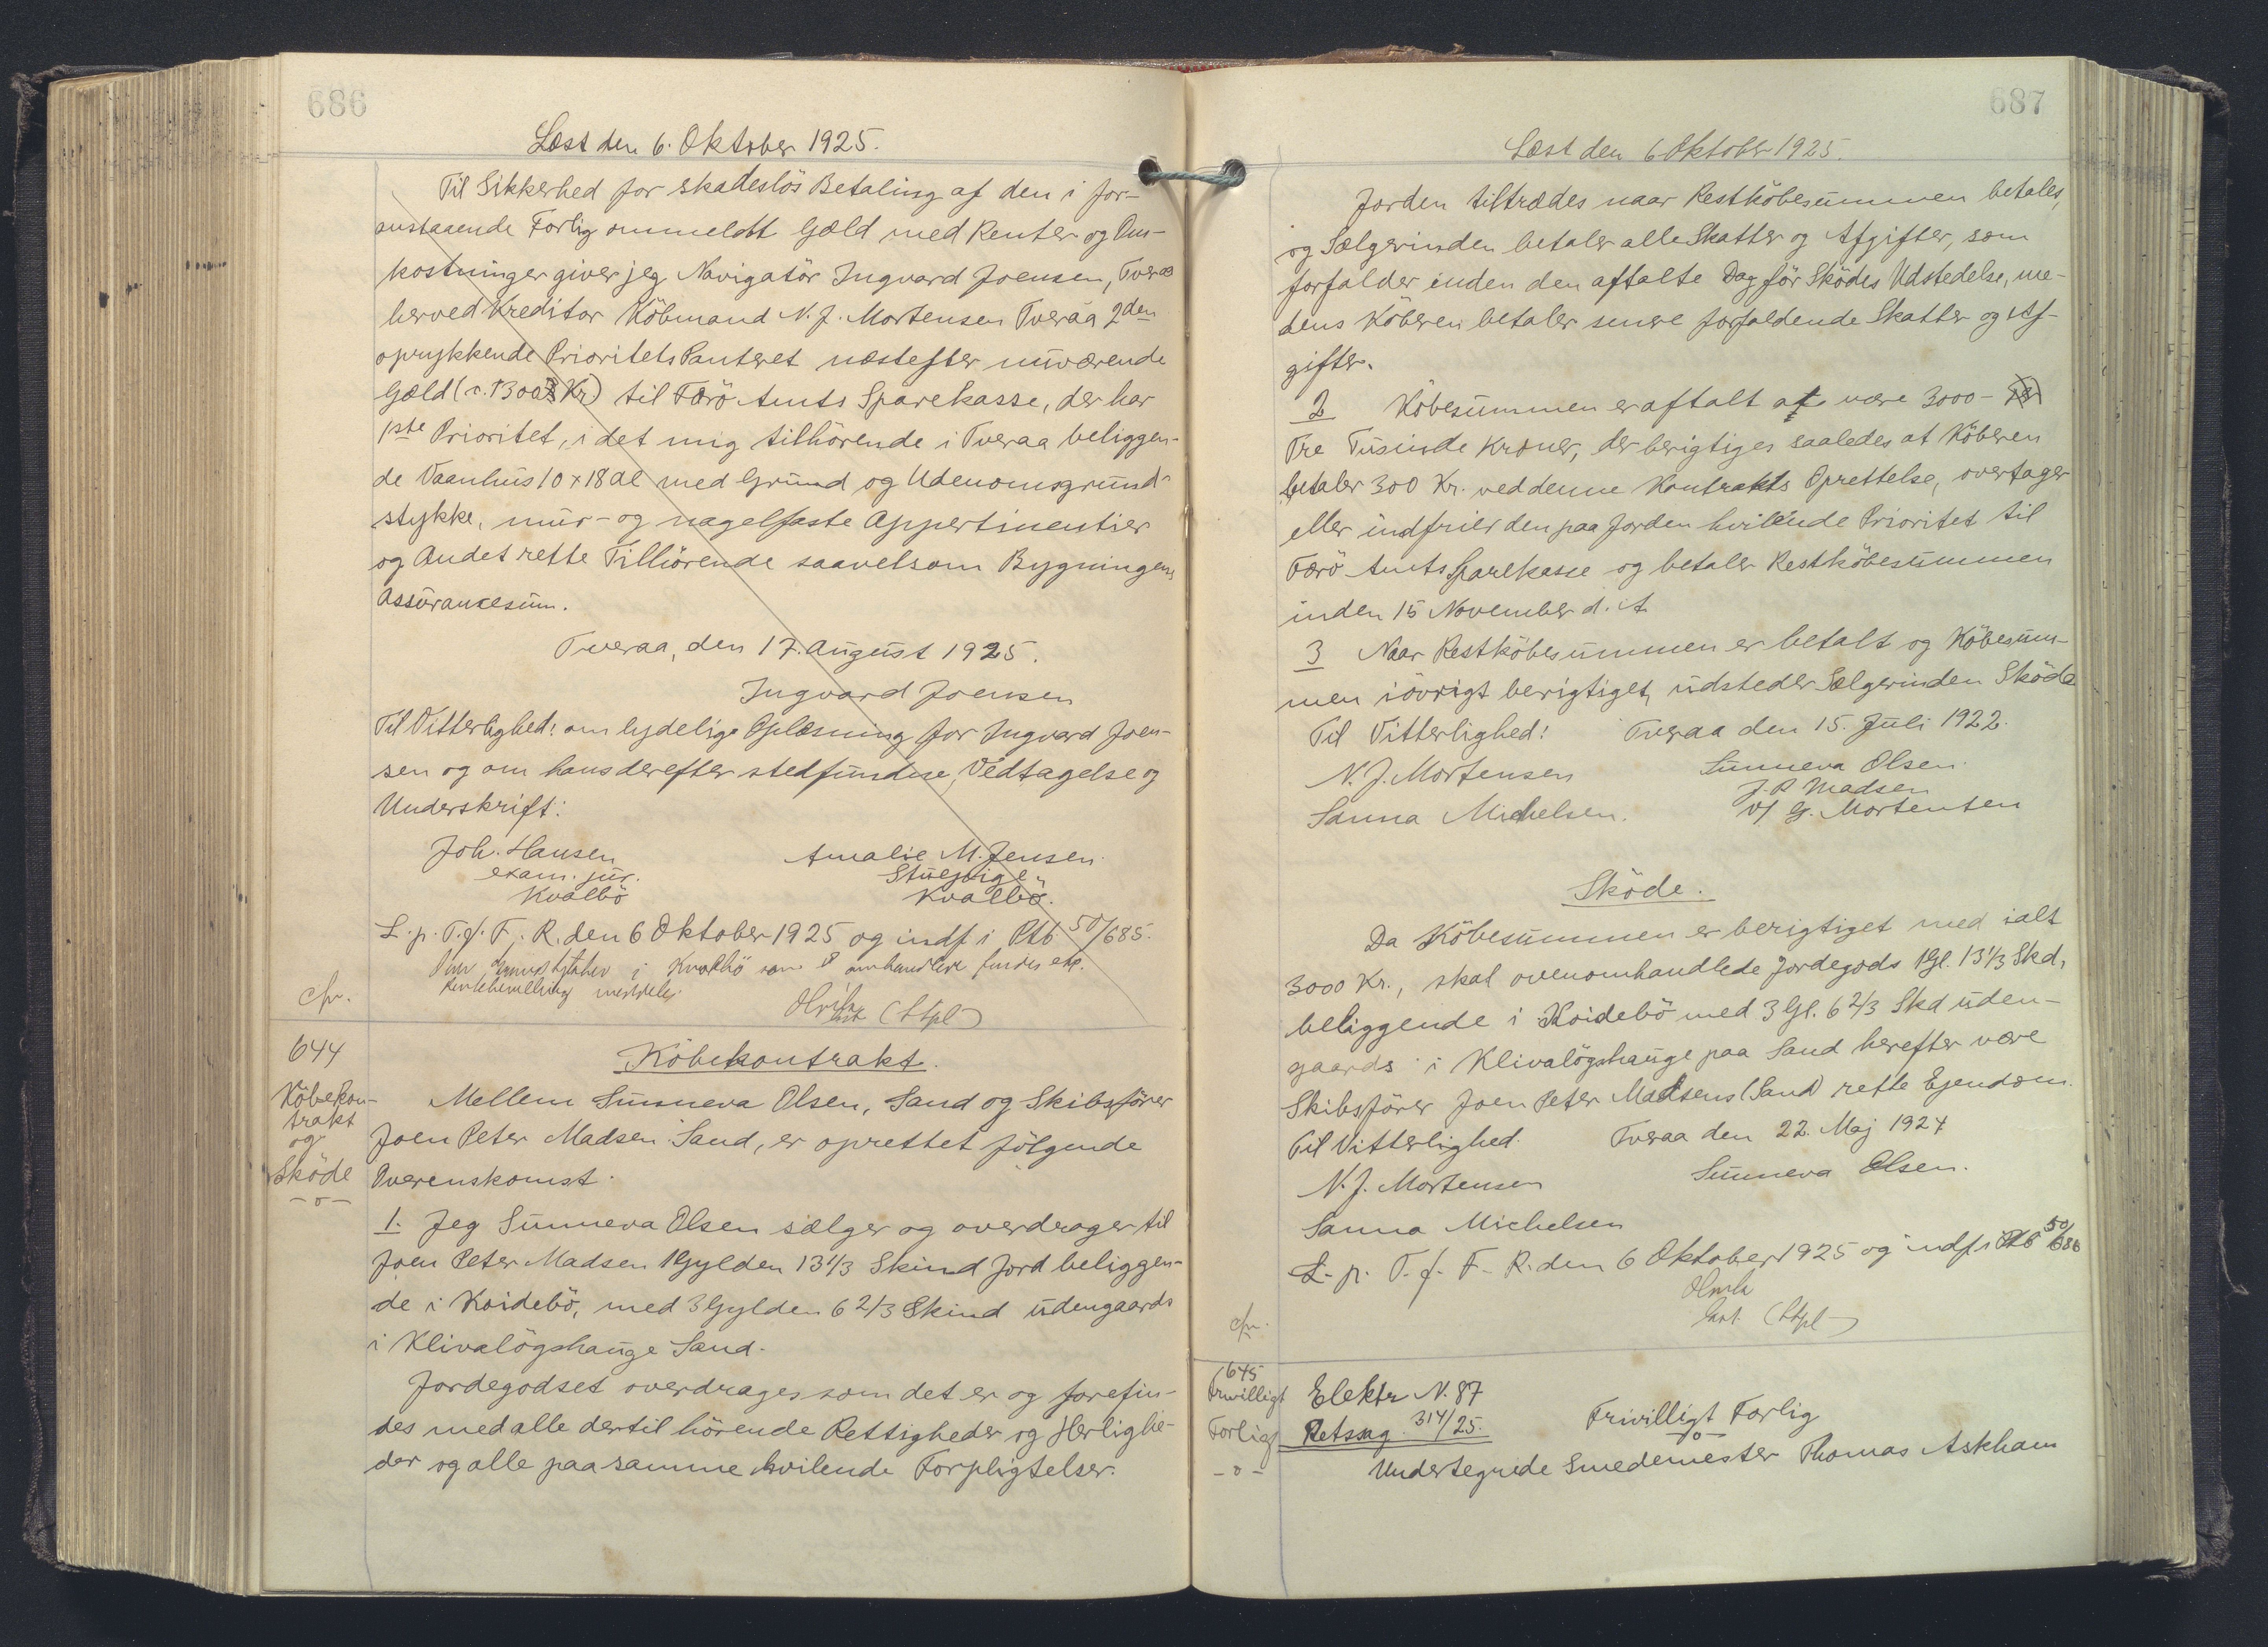 686
Læst den 6. Oktober 1925.
Til Sikkerhed for skadeslös Betaling af den i for-
anstaaende Forlig ommeldt Gæld med Renter og Om-
kostninger giver jeg Navigatör Ingvard Joensen, Tveraa
herved Kreditor Köbmand N. J. Mortensen Tveraa 2den
oprykkende Prioritets Panteret næstefter nuværende
Gæld (c. 1300 Kr) til Færö Amts Sparekasse, der har
1ste Prioritet, i det mig tilhörende i Tveraa beliggen-
de Vaanhus 10 x 18 al med Grund og Udenomsgrund-
stykke, mur- og nagelfaste Appertinentier
og Andet rette Tilhörende saavelsom Bygningens
Assurancesum.
Tveraa, den 17. August 1925.
Ingvard Joensen
Til Vitterlighed: om lydelige Oplæsning for Ingvard Joen-
sen og om hans derefter stedfundne Vedtagelse og
Underskrift:
Joh. Hansen
exam. jur.
Kvalbö
Amalie M. Jensen
Stuepige
Kvalbö.
L. p. T. f. F. R. den 6 Oktober 1925 og indf i Ptb 50/685.
i Kvalbö som
(Stpl)
cfr.
644
Köbekon-
trakt
og
Sköde
-o-
Köbekontrakt.
Mellem Sunneva Olsen, Sand og Skibsförer
Joen Peter Madsen Sand, er oprettet fölgende
Overenskomst.
1. Jeg Sunneva Olsen sælger og overdrager til
Joen Peter Madsen 1 Gylden 13 1/3 Skind Jord beliggen-
de i Koidebö, med 3 Gylden 6 2/3 Skind udengaards
i Klivalögshauge Sand.
Jordegodset overdrages som det er og forefin-
des med alle dertil hörende Rettigheder og Herlighe-
der og alle paa samme hvilende Forpligtelser.
687
Læst den 6 Oktober 1925.
Jorden tiltrædes naar Restköbesummen betales,
og Sælgerinden betaler alle Skatter og Afgifter, som
forfalder inden den aftalte Dag för Sködes Udstedelse, me-
dens Köberen betaler senere forfaldende Skatter og Af-
gifter.
2 Köbesummen er aftalt at være 3000 -
Tre Tusinde Kroner, der berigtiges saaledes at Köberen
betaler 300 Kr. ved denne Kontrakts Oprettelse, overtager
eller indfrier den paa Jorden hvilende Prioritet til
Færö Amts Sparekasse og betaler Restköbesummen
inden 15 November d. A.
3 Naar Restköbesummen er betalt og Köbesum-
men iövrigt berigtiget, udsteder Sælgerinden Sköde
Til Vitterlighed: Tveraa den 15. Juli 1922.
N. J. Mortensen Sunneva Olsen
J. P. Madsen
Sanna Michelsen. v/ G. Mortensen
Sköde.
Da Köbesummen er berigtiget med ialt
3000 Kr., skal ovenomhandlede Jordegods 1 Gl. 13 1/3 Skd,
beliggende i Koidebö med 3 Gl. 6 2/3 Skd uden-
gaards i Klivalögshauge paa Sand herefter være
Skibsförer Joen Peter Madsens (Sand) rette Ejendom.
Til Vitterlighed. Tveraa den 22. Maj 1924
N. J. Mortensen Sunneva Olsen.
Sanna Michelsen
L. p. T. f. F. R. den 6 Oktober 1925 og indf i Ptb 50/686
(Stpl)
cfr.
645
Frivilligt
Forlig
-o-
Elektr N. 87
Retssag 314/25.
Frivilligt Forlig
Undertegnede Smedemester Thomas Askham